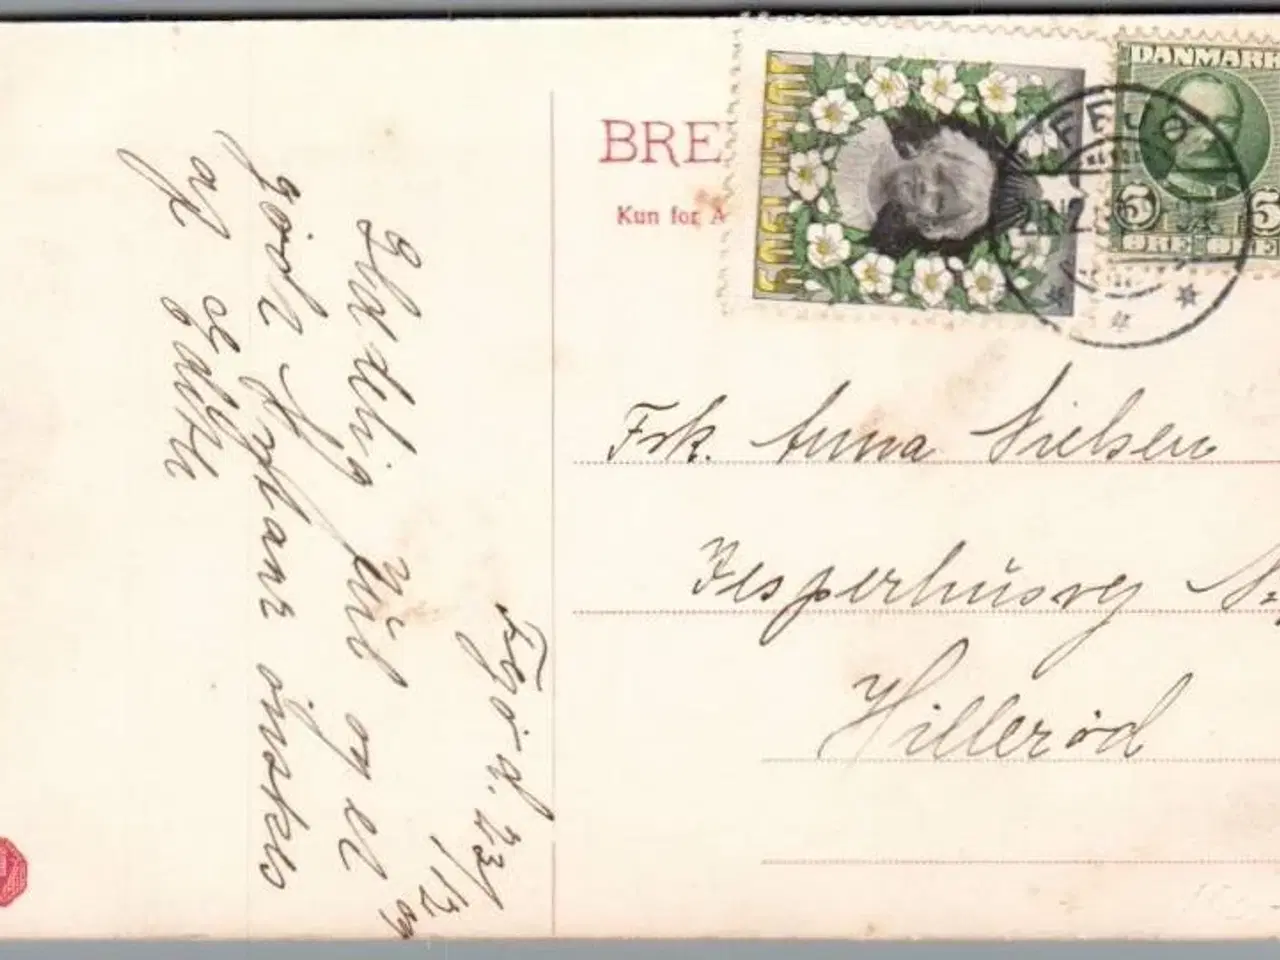 Fejø d. 23/12 09
Glædelig Jul og et
godt Nytaar ønskes
af
BRE
Kun for A
JULEN 1909
DANMARK
5 5
ØRE ØRE
FEJØ
Frk. Anna Nielsen
Jesperhusvej
Hillerød